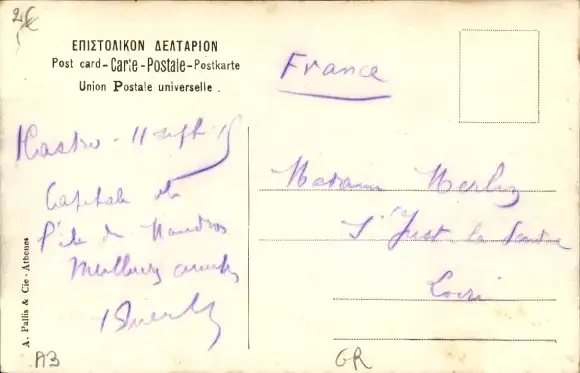 2€
ΕΠΙΣΤΟΛΙΚΟΝ ΔΕΛΤΑΡΙΟΝ
Post card - Carte - Postale - Postkarte
Union Postale universelle.
France
Kastro - 11 sept 15
Capitale de
l'île de Moudros
Meilleurs
Madame
St Just la Pendue
Loire
A. Pallis & Cie - Athenes
A3
GR